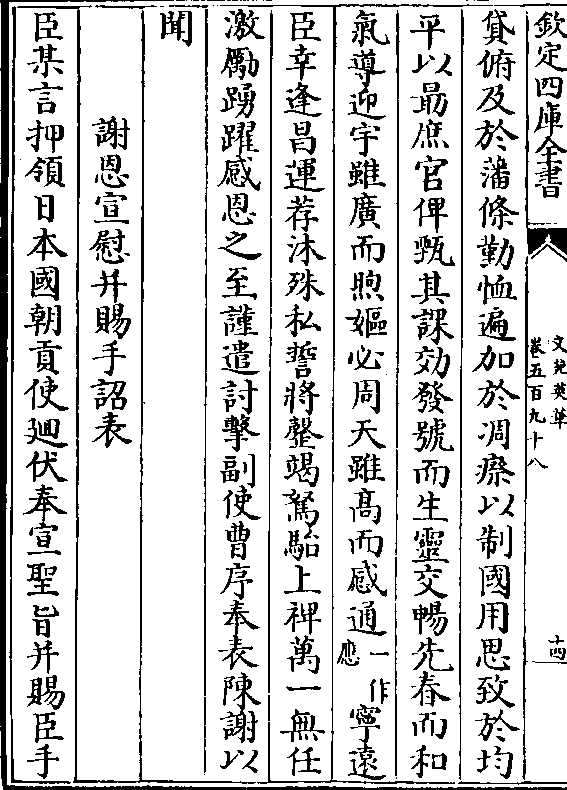 欽定四庫全書
文苑英華
卷五百九十八
十四
貸俯及於藩條勤恤遍加於凋瘵以制國用思致於均
平以最庶官俾甄其課効發號而生靈交暢先春而和
氣導迎宇雖廣而煦嫗必周天雖髙而感通一作應寧遠
臣幸逢昌運荐沐殊私誓將罄竭駑駘上裨萬一無任
激勵踴躍感恩之至謹遣討擊副使曹序奉表陳謝以
聞
謝恩宣慰并賜手詔表
臣某言押領日本國朝貢使廻伏奉宣聖旨并賜臣手